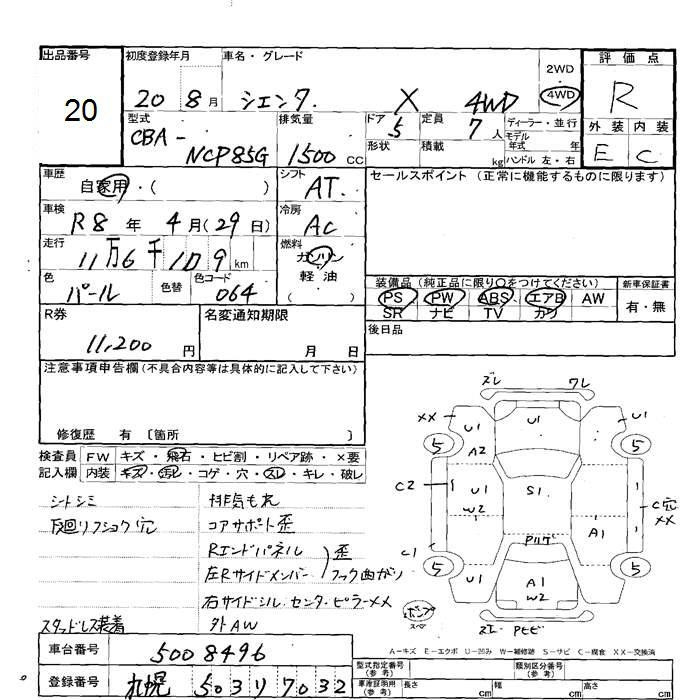 出品番号
20
初度登録年月
20 8月
車名・グレード
シエンタ X 4WD
2WD
4WD
評価点
R
外装 内装
E C
型式
CBA-
NCP85G
排気量
1500 CC
ドア
5
形状
定員
7人
積載
kg
ディーラー・並行
モデル
年式 年
ハンドル 左・右
車歴
自家用・( )
シフト
AT.
セールスポイント (正常に機能するものに限ります)
車検
R8年 4月(29日)
冷房
AC
走行
11万6千109 km
燃料
ガソリン
軽油
( )
色
パール
色替
色コード
064
装備品 (純正品に限り○をつけてください)
PS PW ABS エアB AW
SR ナビ TV カワ
新車保証書
有・無
R券
11,200 円
名変通知期限
月 日
後日品
注意事項申告欄(不具合内容等は具体的に記入して下さい)
修復歴 有 〔箇所 〕
検査員 FW キズ・飛石・ヒビ割・リペア跡・×要
記入欄 内装 キズ・汚レ・コゲ・穴・スレ・キレ・破レ
シートシミ
排気もれ
コアサポート歪
Rエンドパネル
左Rサイドメンバー
歪
フック曲がり
右サイドシル・センターピラーXX
スタッドレス装着
外AW
ズレ ワレ
XX
U1
U1
U1
5
5
A2
C2
U1
W2
S1
C穴
XX
A1
C1
Pリゲ
5
5
U1
A1
W2
A-キズ E-エクボ U-凹み W-補修跡 S-サビ C-腐食 XX-交換済
車台番号
5008496
登録番号
札幌 503 リ 7032
型式指定番号
(参考)
類別区分番号
(参考)
車庫証明用
(参考)
長さ cm
幅 cm
高さ cm